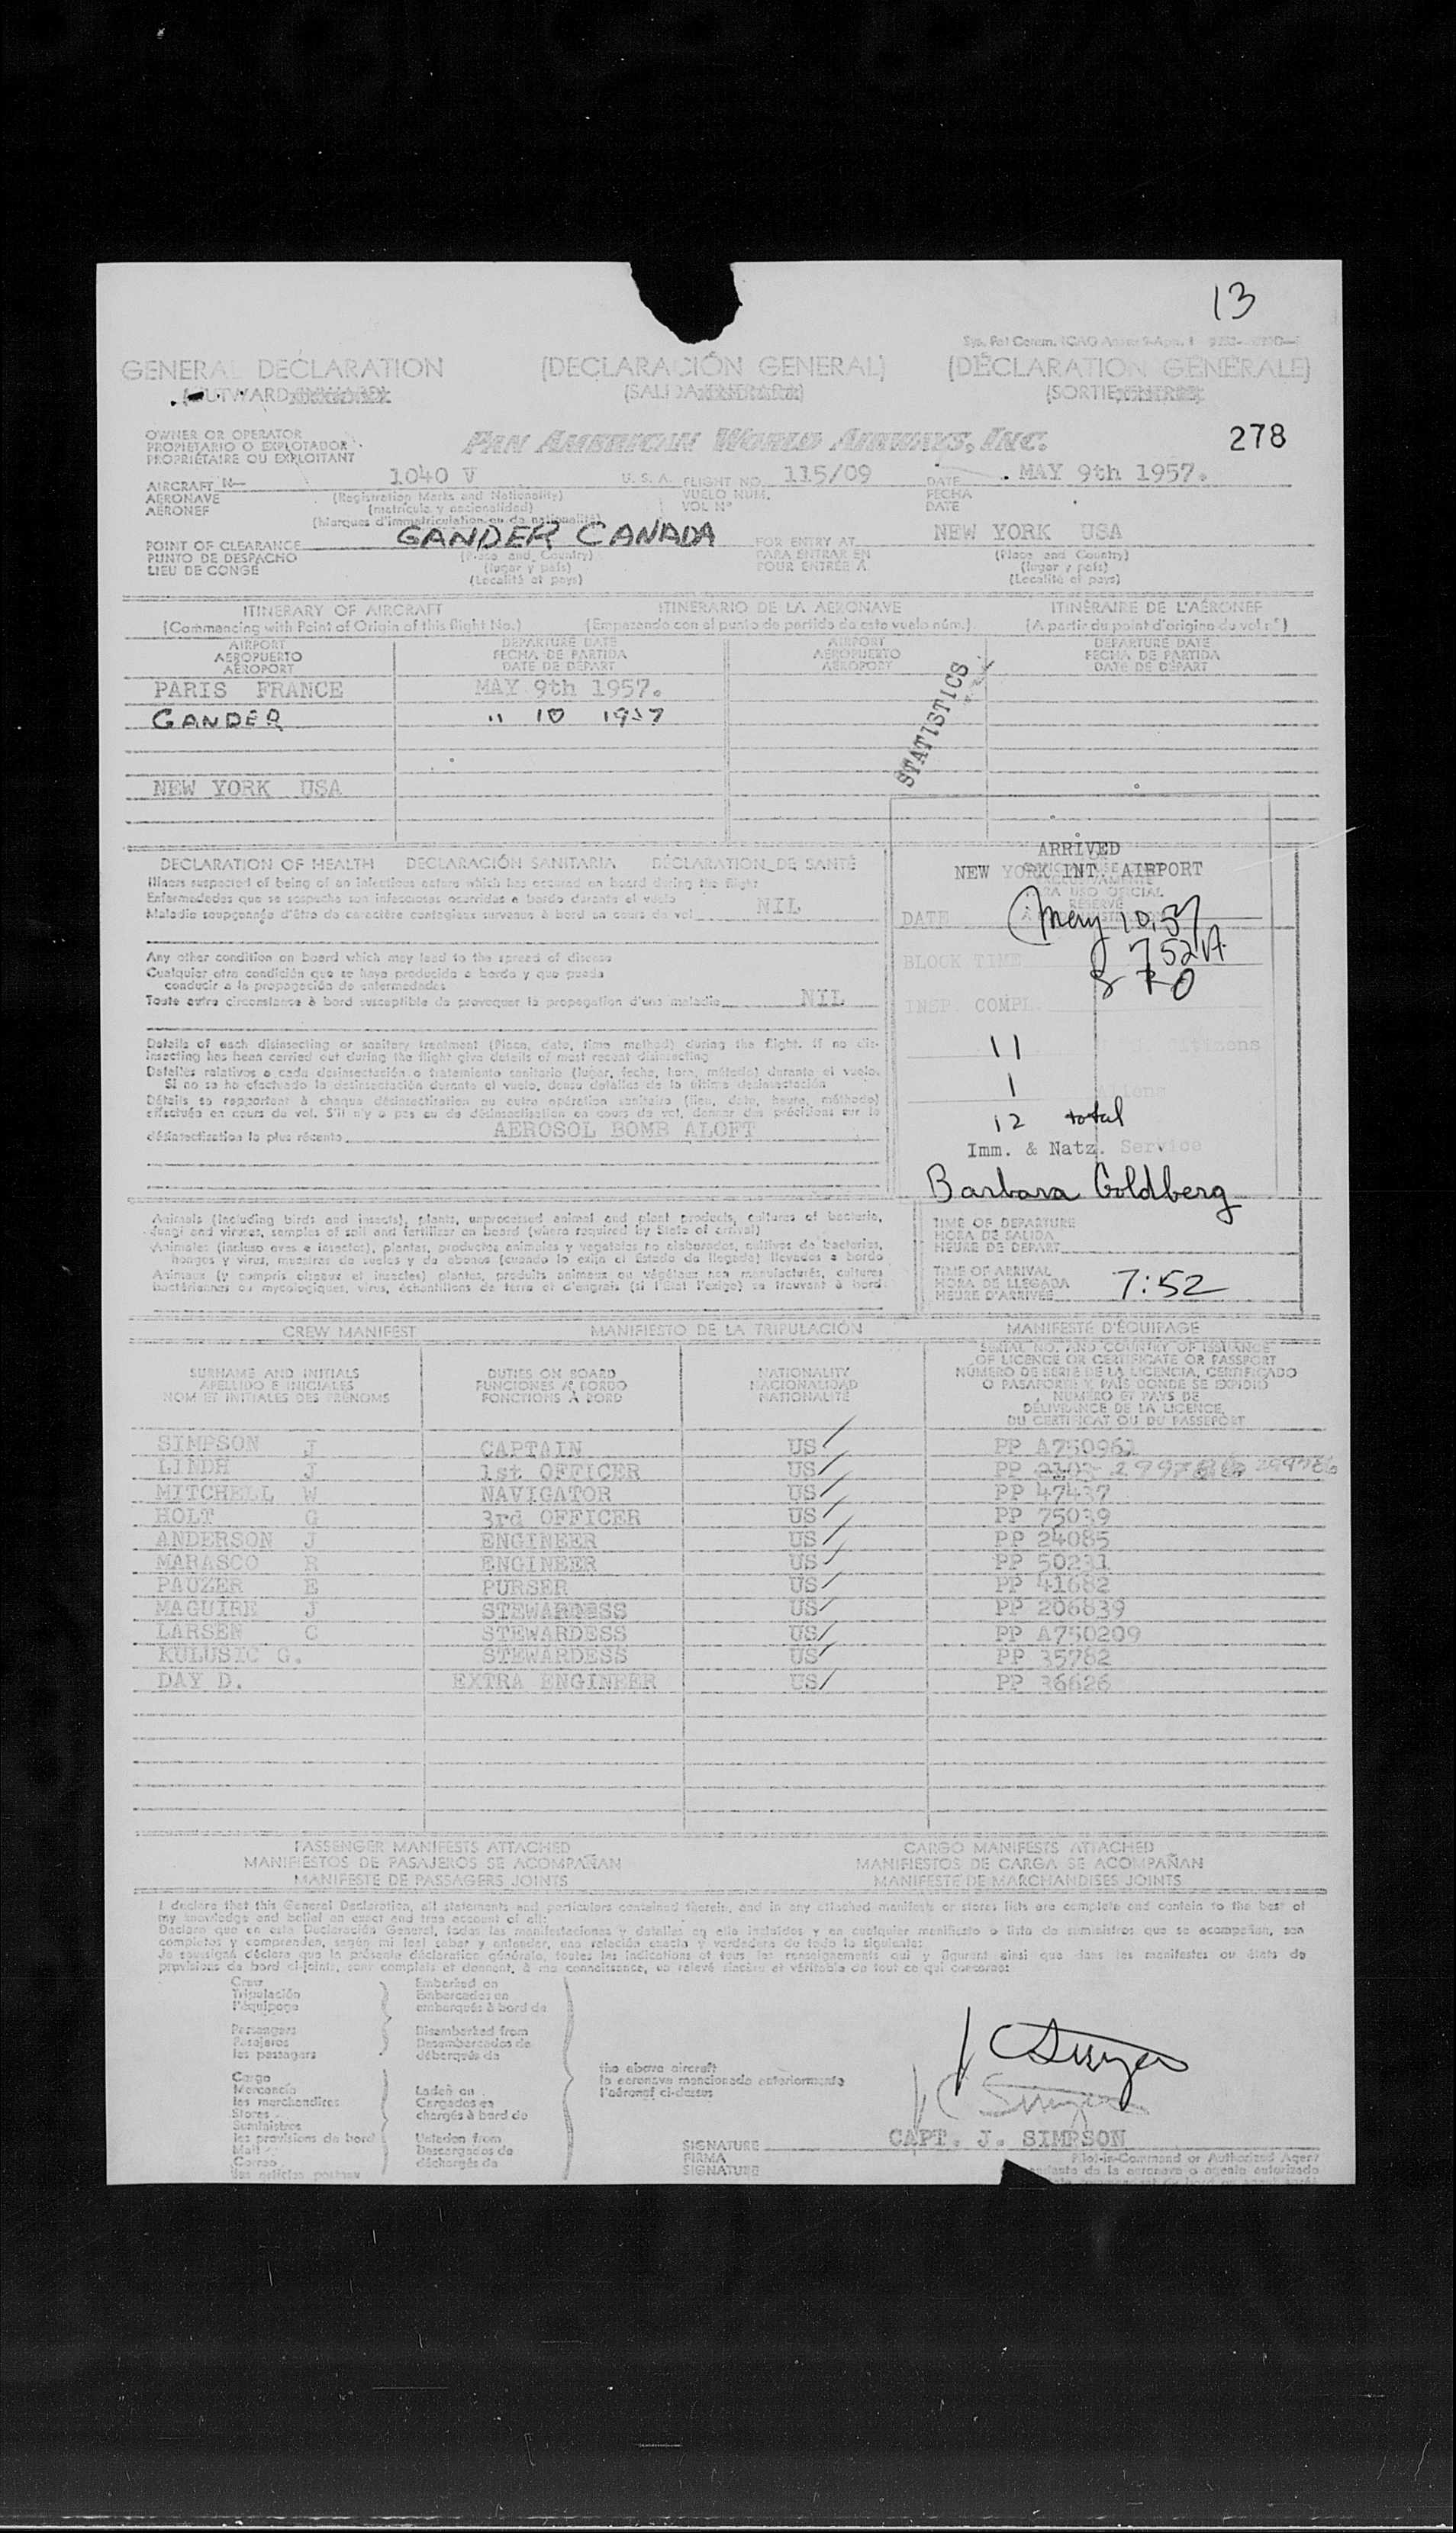 13
GENERAL DECLARATION (DECLARACIÓN GENERAL) (DÉCLARATION GÉNÉRALE)
(OUTWARD (SALIDA (SORTIE
OWNER OR OPERATOR
PROPIETARIO O EXPLOTADOR
PROPRIÉTAIRE OU EXPLOITANT
PAN AMERICAN WORLD AIRWAYS, INC. 278
AIRCRAFT N— 1040 V U. S. A. FLIGHT NO. 115/09 DATE MAY 9th 1957.
AERONAVE (Registration Marks and Nationality) VUELO NÚM. FECHA
AÉRONEF (matrícula y nacionalidad) VOL Nº DATE
(Marques d'immatriculation ou de nationalité)
POINT OF CLEARANCE GANDER CANADA FOR ENTRY AT NEW YORK USA
PUNTO DE DESPACHO (Place and Country) PARA ENTRAR EN (Place and Country)
LIEU DE CONGÉ (lugar y país) POUR ENTRÉE A (lugar y país)
(Localité et pays) (Localité et pays)
ITINERARY OF AIRCRAFT ITINERARIO DE LA AERONAVE ITINÉRAIRE DE L'AÉRONEF
(Commencing with Point of Origin of this flight No.) (Empezando con el punto de partida de este vuelo núm.) (A partir du point d'origine du vol nº)
AIRPORT DEPARTURE DATE AIRPORT DEPARTURE DATE
AEROPUERTO FECHA DE PARTIDA AEROPUERTO FECHA DE PARTIDA
AÉROPORT DATE DE DÉPART AÉROPORT DATE DE DÉPART
PARIS FRANCE MAY 9th 1957.
GANDER " 10 1957
STATISTICS
NEW YORK USA
DECLARATION OF HEALTH DECLARACIÓN SANITARIA DÉCLARATION DE SANTÉ
Illness suspected of being of an infectious nature which has occured on board during the flight
Enfermedades que se sospecha son infecciosas ocurridas a bordo durante el vuelo
Maladie soupçonnée d'être de caractère contagieux survenue à bord en cours de vol NIL
Any other condition on board which may lead to the spread of disease
Cualquier otra condición que se haya producido a bordo y que pueda
conducir a la propagación de enfermedades
Toute autre circonstance à bord susceptible de provoquer la propagation d'une maladie NIL
Details of each disinsecting or sanitary treatment (Place, date, time method) during the flight. If no dis-
insecting has been carried out during the flight give details of most recent disinsecting
Detalles relativos a cada desinsectación o tratamiento sanitario (lugar, fecha, hora, método) durante el vuelo.
Si no se ha efectuado la desinsectación durante el vuelo, dense detalles de la última desinsectación
Détails se rapportant à chaque désinsectisation ou autre opération sanitaire (lieu, date, heure, méthode)
effectuée en cours de vol. S'il n'y a pas eu de désinsectisation en cours de vol, donner des précisions sur la
désinsectisation la plus récente AEROSOL BOMB ALOFT
ARRIVED
NEW YORK INT. AIRPORT
DATE May 10, 57
BLOCK TIME 752A
INSP. COMPL.
11 Citizens
1
12 total
Imm. & Natz. Service
Barbara Goldberg
Animals (including birds and insects), plants, unprocessed animal and plant products, cultures of bacteria,
fungi and viruses, samples of soil and fertilizer on board (where required by State of arrival)
Animales (incluso aves e insectos), plantas, productos animales y vegetales no elaborados, cultivos de bacterias,
hongos y virus, muestras de suelos y de abonos (cuando lo exija el Estado de llegada) llevados a bordo
Animaux (y compris oiseaux et insectes) plantes, produits animaux ou végétaux non manufacturés, cultures
bactériennes ou mycologiques, virus, échantillons de terre et d'engrais (si l'État l'exige) se trouvant à bord
TIME OF DEPARTURE
HORA DE SALIDA
HEURE DE DÉPART
TIME OF ARRIVAL
HORA DE LLEGADA
HEURE D'ARRIVÉE 7:52
CREW MANIFEST MANIFIESTO DE LA TRIPULACIÓN MANIFESTE D'ÉQUIPAGE
SURNAME AND INITIALS
APELLIDO E INICIALES
NOM ET INITIALES DES PRÉNOMS
DUTIES ON BOARD
FUNCIONES A BORDO
FONCTIONS À BORD
NATIONALITY
NACIONALIDAD
NATIONALITÉ
SERIAL NO. AND COUNTRY OF ISSUANCE
OF LICENCE OR CERTIFICATE OR PASSPORT
NÚMERO DE SERIE DE LA LICENCIA, CERTIFICADO
O PASAPORTE Y PAÍS DONDE SE EXPIDIÓ
NUMÉRO ET PAYS DE
DÉLIVRANCE DE LA LICENCE,
DU CERTIFICAT OU DU PASSEPORT
SIMPSON J CAPTAIN US PP A750961
LINDH J 1st OFFICER US PP 299786
MITCHELL W NAVIGATOR US PP 47437
HOLT G 3rd OFFICER US PP 75039
ANDERSON J ENGINEER US PP 24085
MARASCO R ENGINEER US PP 50231
PAUZER E PURSER US PP 41682
MAGUIRE J STEWARDESS US PP 206639
LARSEN C STEWARDESS US PP A750209
KULUSIC G. STEWARDESS US PP 35782
DAY D. EXTRA ENGINEER US PP 36626
PASSENGER MANIFESTS ATTACHED CARGO MANIFESTS ATTACHED
MANIFIESTOS DE PASAJEROS SE ACOMPAÑAN MANIFIESTOS DE CARGA SE ACOMPAÑAN
MANIFESTE DE PASSAGERS JOINTS MANIFESTE DE MARCHANDISES JOINTS
I declare that this General Declaration, all statements and particulars contained therein, and in any attached manifests or stores lists are complete and contain to the best of
my knowledge and belief an exact and true account of all:
Declaro que en esta Declaración General, todas las manifestaciones y detalles en ella incluidos y en cualquier manifiesto o lista de suministros que se acompañan, son
completos y comprenden, según mi leal saber y entender, una relación exacta y verdadera de todo lo siguiente:
Je soussigné déclare que la présente déclaration générale, toutes les indications et tous les renseignements qui y figurent ainsi que dans les manifestes ou états de
provisions de bord ci-joints, sont complets et donnent, à ma connaissance, un relevé sincère et véritable de tout ce qui concerne:
Crew Embarked on
Tripulación Embarcados en
l'équipage embarqués à bord de
Passengers Disembarked from
Pasajeros Desembarcados de
les passagers débarqués de
the above aircraft
la aeronave mencionada anteriormente
l'aéronef ci-dessus
Cargo
Mercancía Laden on
les marchandises Cargados en
Stores chargés à bord de
Suministros
les provisions de bord Unladen from
Mail Descargados de
Correo déchargés de
SIGNATURE CAPT. J. SIMPSON
FIRMA Pilot-in-Command or Authorized Agent
SIGNATURE de la aeronave o agente autorizado